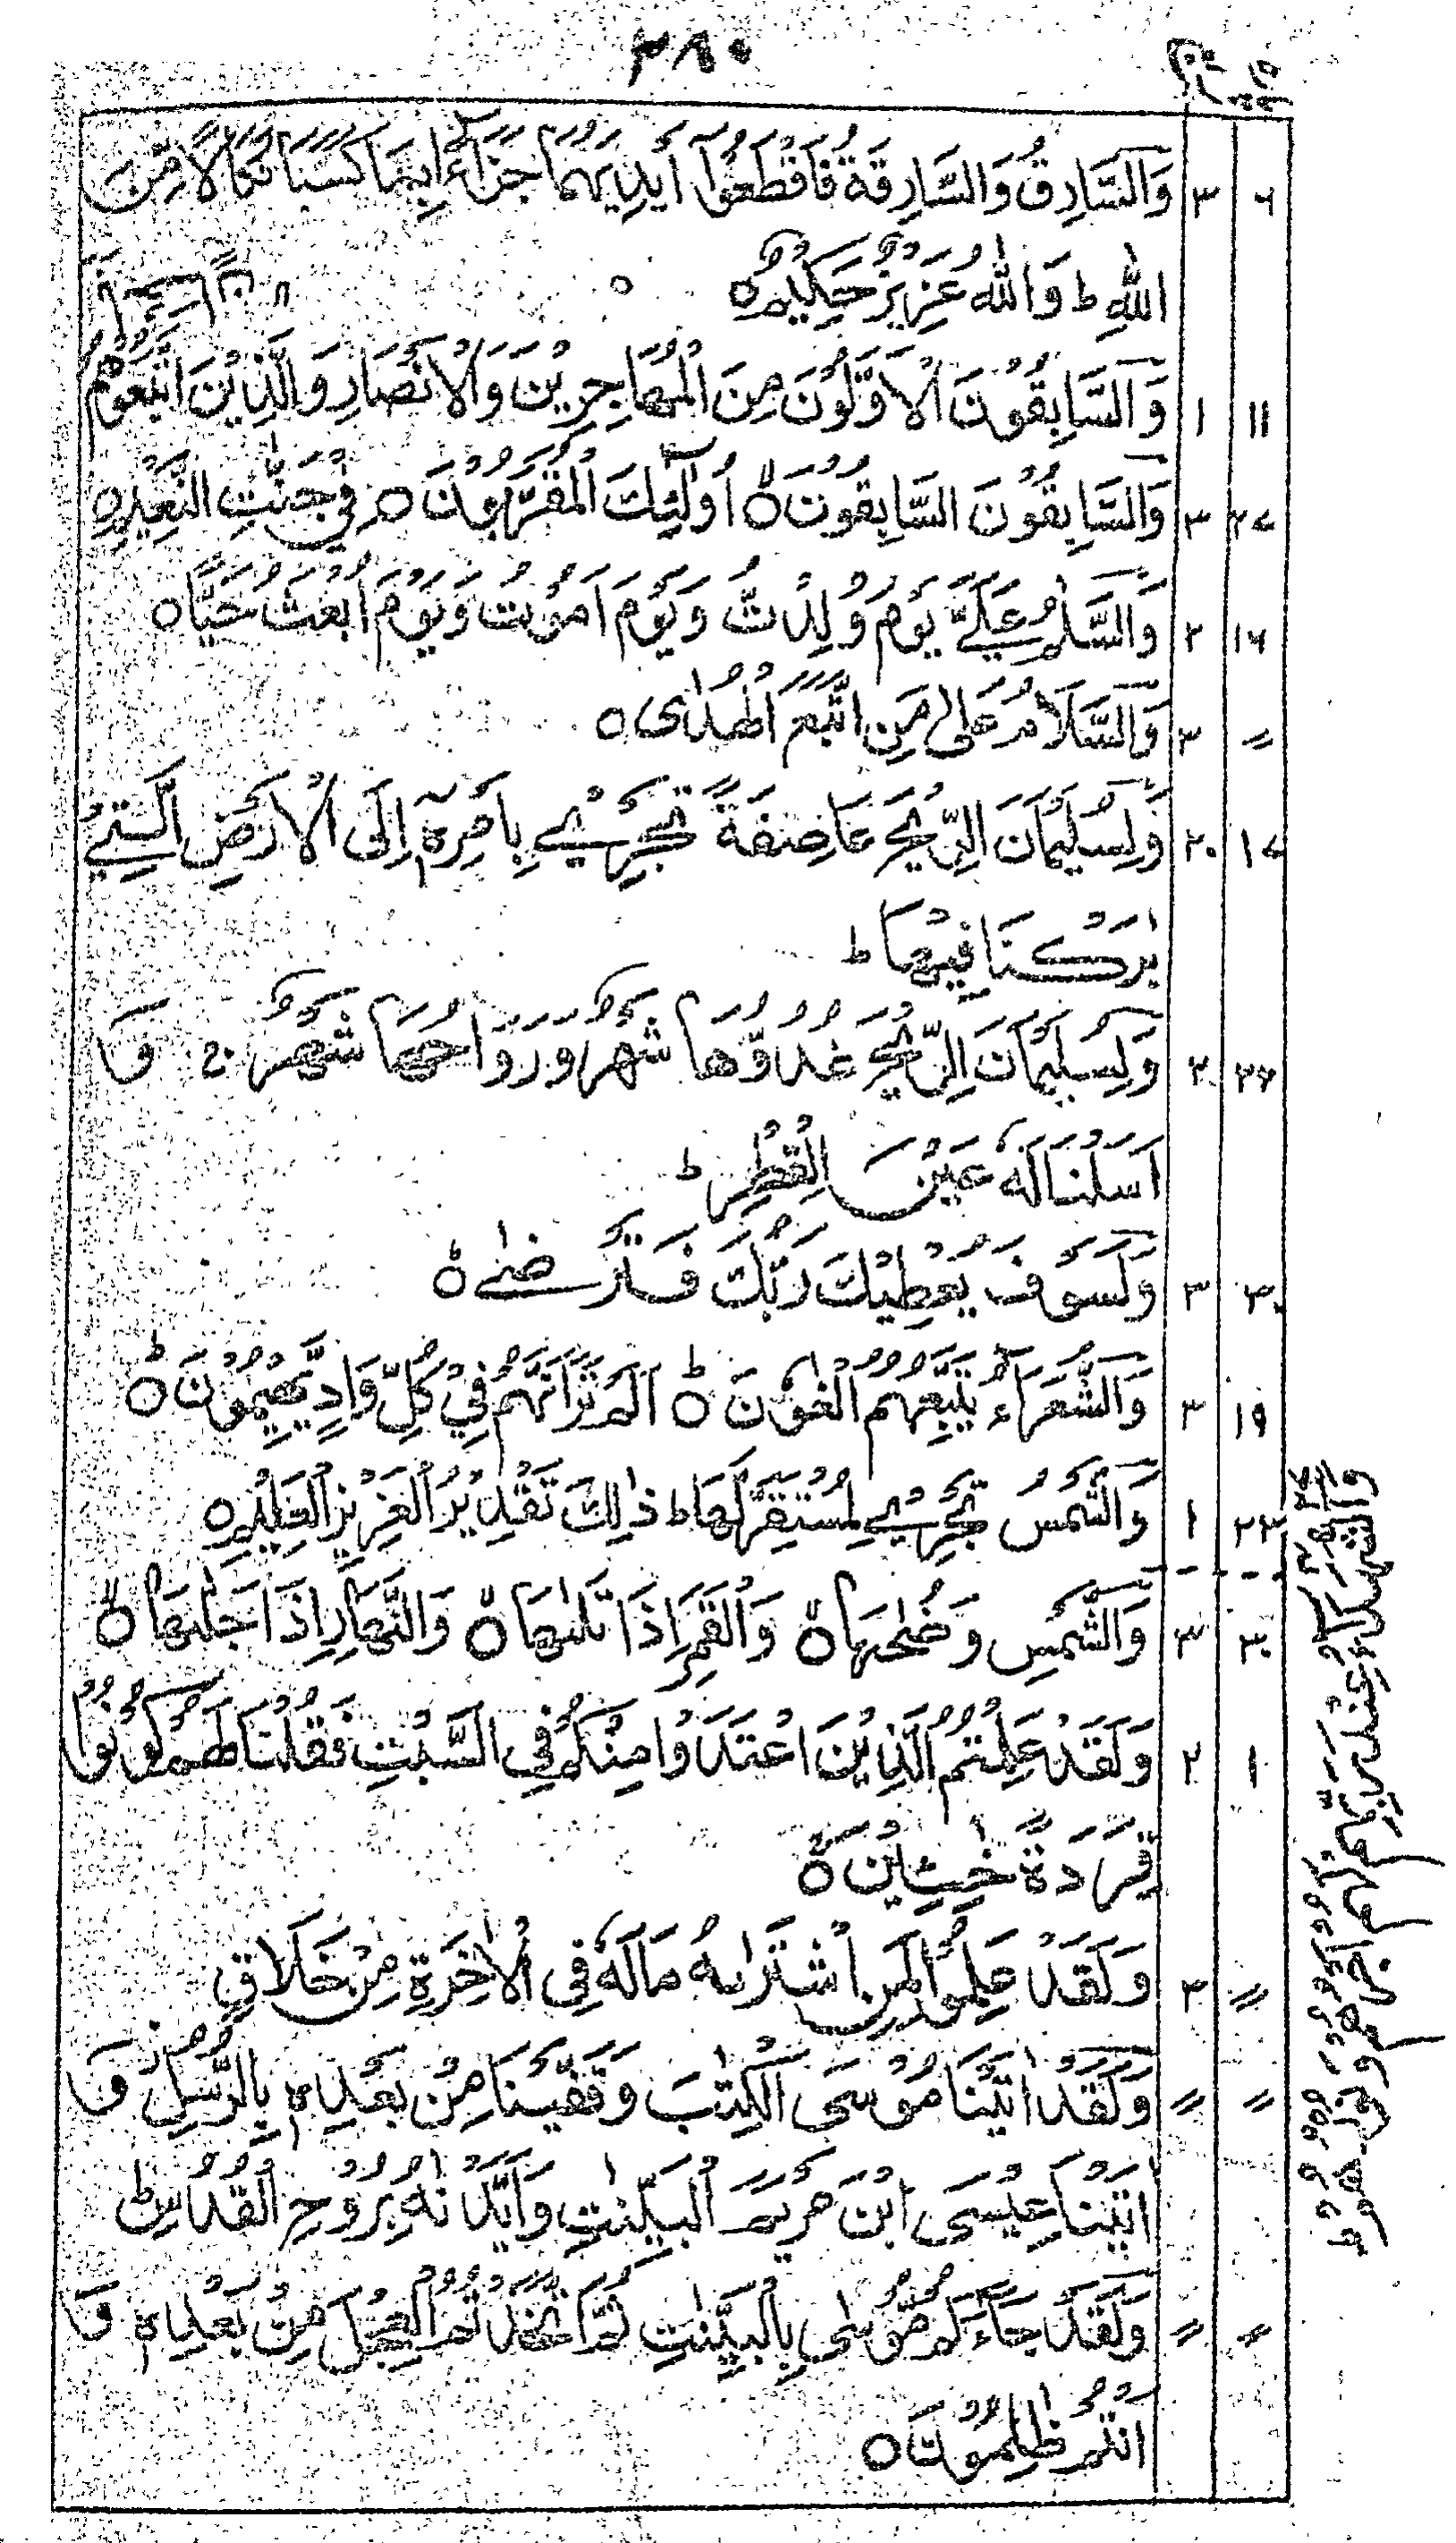 ۳۸۰
۶ ۳ وَالسَّارِقُ وَالسَّارِقَةُ فَاقْطَعُوْٓا اَيْدِيَهُمَا جَزَآءًۢ بِمَا كَسَبَا نَكَالًا مِّنَ
اللّٰهِ ط وَاللّٰهُ عَزِيْزٌ حَكِيْمٌ ۝
۱۱ ۱ وَالسَّابِقُوْنَ الْاَوَّلُوْنَ مِنَ الْمُهَاجِرِيْنَ وَالْاَنْصَارِ وَالَّذِيْنَ اتَّبَعُوْهُمْ
۲۷ ۳ وَالسَّابِقُوْنَ السَّابِقُوْنَ ۝ اُولٰٓئِكَ الْمُقَرَّبُوْنَ ۝ فِيْ جَنّٰتِ النَّعِيْمِ ۝
۱۶ ۲ وَالسَّلٰمُ عَلَيَّ يَوْمَ وُلِدْتُّ وَيَوْمَ اَمُوْتُ وَيَوْمَ اُبْعَثُ حَيًّا ۝
〃 ۳ وَالسَّلَامُ عَلٰى مَنِ اتَّبَعَ الْهُدٰى ۝
۱۷ ۲ وَلِسُلَيْمَانَ الرِّيْحَ عَاصِفَةً تَجْرِيْ بِاَمْرِهٖٓ اِلَى الْاَرْضِ الَّتِيْ
بٰرَكْنَا فِيْهَا ط
۲۲ ۲ وَلِسُلَيْمَانَ الرِّيْحَ غُدُوُّهَا شَهْرٌ وَّرَوَاحُهَا شَهْرٌ ج وَ
اَسَلْنَا لَهٗ عَيْنَ الْقِطْرِ ط
۳۰ ۳ وَلَسَوْفَ يُعْطِيْكَ رَبُّكَ فَتَرْضٰى ۝
۱۹ ۳ وَالشُّعَرَآءُ يَتَّبِعُهُمُ الْغَاوٗنَ ۝ اَلَمْ تَرَ اَنَّهُمْ فِيْ كُلِّ وَادٍ يَّهِيْمُوْنَ ۝
۲۳ ۱ وَالشَّمْسُ تَجْرِيْ لِمُسْتَقَرٍّ لَّهَا ط ذٰلِكَ تَقْدِيْرُ الْعَزِيْزِ الْعَلِيْمِ ۝
۳۰ ۳ وَالشَّمْسِ وَضُحٰىهَا ۝ وَالْقَمَرِ اِذَا تَلٰىهَا ۝ وَالنَّهَارِ اِذَا جَلّٰىهَا ۝
۱ ۲ وَلَقَدْ عَلِمْتُمُ الَّذِيْنَ اعْتَدَوْا مِنْكُمْ فِي السَّبْتِ فَقُلْنَا لَهُمْ كُوْنُوْا
قِرَدَةً خٰسِئِيْنَ ۝
〃 ۳ وَلَقَدْ عَلِمُوْا لَمَنِ اشْتَرٰىهُ مَا لَهٗ فِي الْاٰخِرَةِ مِنْ خَلَاقٍ
〃 〃 وَلَقَدْ اٰتَيْنَا مُوْسَى الْكِتٰبَ وَقَفَّيْنَا مِنْۢ بَعْدِهٖ بِالرُّسُلِ وَ
اٰتَيْنَا عِيْسَى ابْنَ مَرْيَمَ الْبَيِّنٰتِ وَاَيَّدْنٰهُ بِرُوْحِ الْقُدُسِ ط
〃 〃 وَلَقَدْ جَآءَكُمْ مُّوْسٰى بِالْبَيِّنٰتِ ثُمَّ اتَّخَذْتُمُ الْعِجْلَ مِنْۢ بَعْدِهٖ وَ
اَنْتُمْ ظٰلِمُوْنَ ۝
وَالشُّهَدَآءُ عِنْدَ رَبِّهِمْ لَهُمْ اَجْرُهُمْ وَنُوْرُهُمْ ط